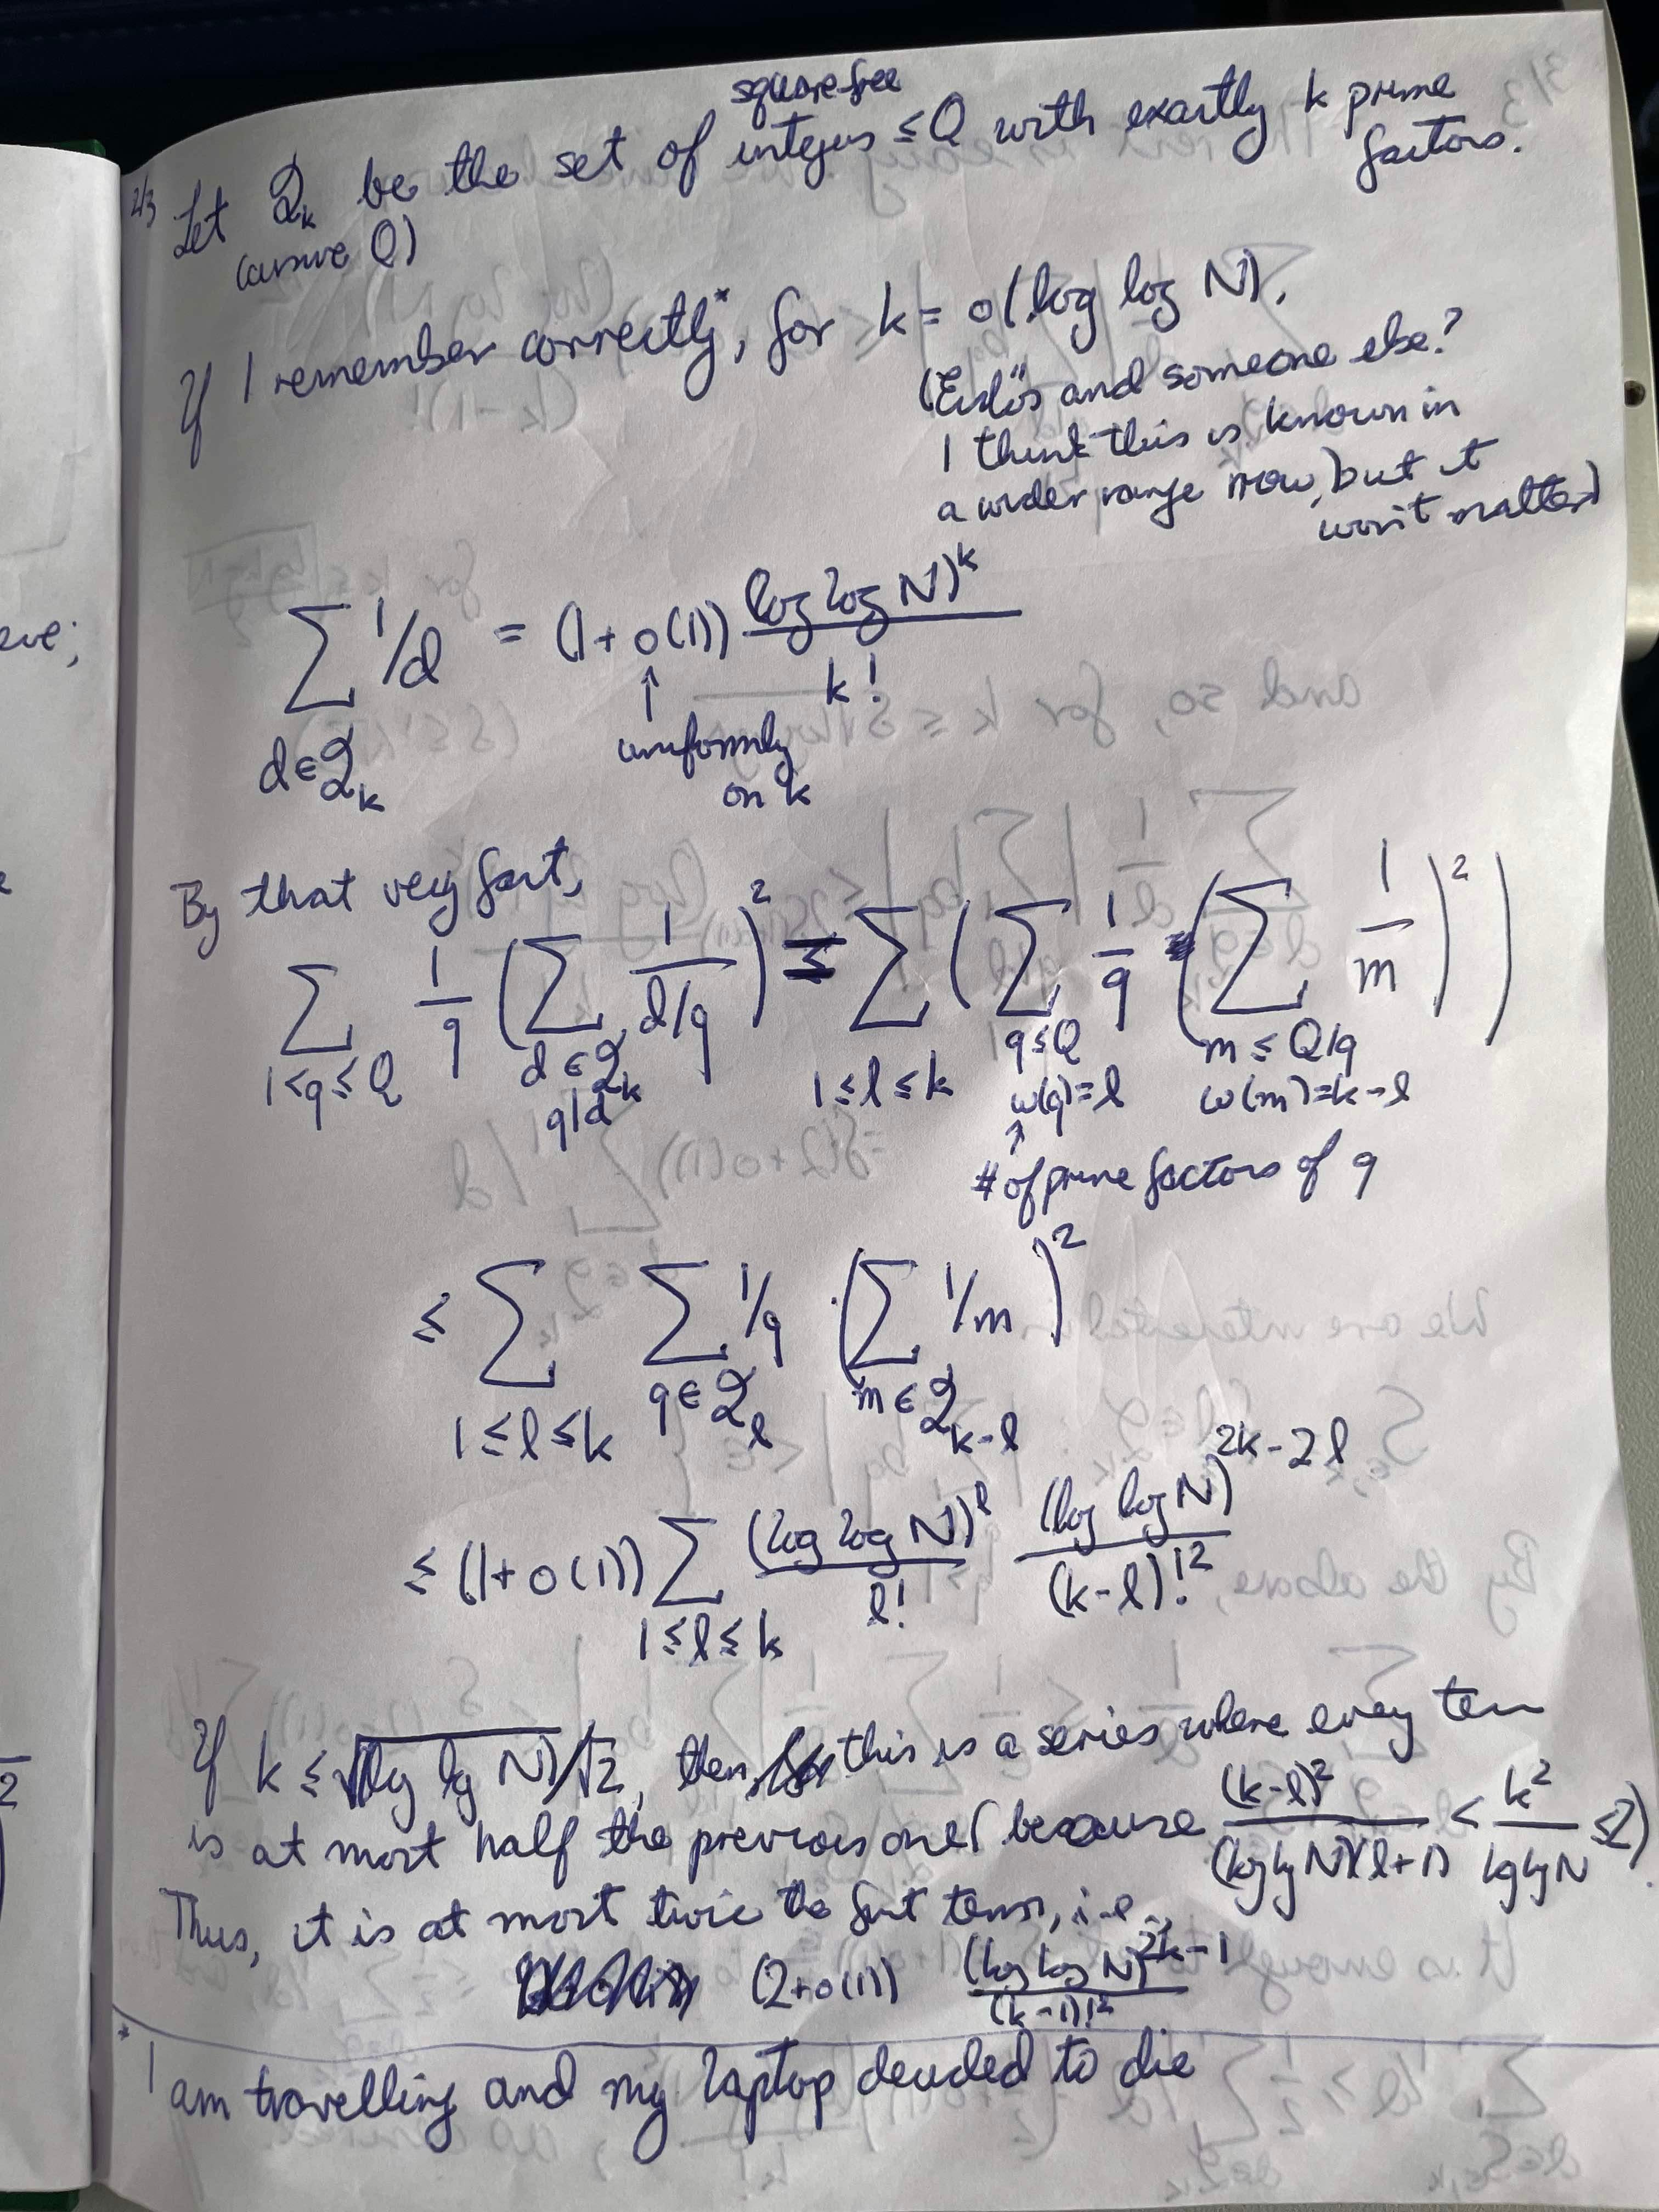 2/3
square-free
Let 𝒬_k be the set of integers ≤ Q with exactly k prime factors.
(cursive Q)
If I remember correctly*, for k = o(log log N),
(Erdős and someone else?
I think this is known in
a wider range now, but it
won't matter)
∑_{d∈𝒬_k} 1/d = (1+o(1)) (log log N)^k / k!
↑
uniformly
on k
By that very fact,
∑_{1<q≤Q} 1/q (∑_{d∈𝒬_k, q|d} 1/(d/q))^2 = ∑_{1≤l≤k} (∑_{q≤Q, ω(q)=l} 1/q (∑_{m≤Q/q, ω(m)=k-l} 1/m)^2)
↑
# of prime factors of q
≤ ∑_{1≤l≤k} ∑_{q∈𝒬_l} 1/q · (∑_{m∈𝒬_{k-l}} 1/m)^2
≤ (1+o(1)) ∑_{1≤l≤k} (log log N)^l / l! (log log N)^{2k-2l} / (k-l)!^2
If k ≤ √(log log N)/√2, then this is a series where every term
is at most half the previous one (because (k-l)^2 / ((log log N)(l+1)) < k^2 / log log N ≤ 2).
Thus, it is at most twice the first term, i.e.,
(2+o(1)) (log log N)^{2k-1} / (k-1)!^2
* I am travelling and my laptop decided to die